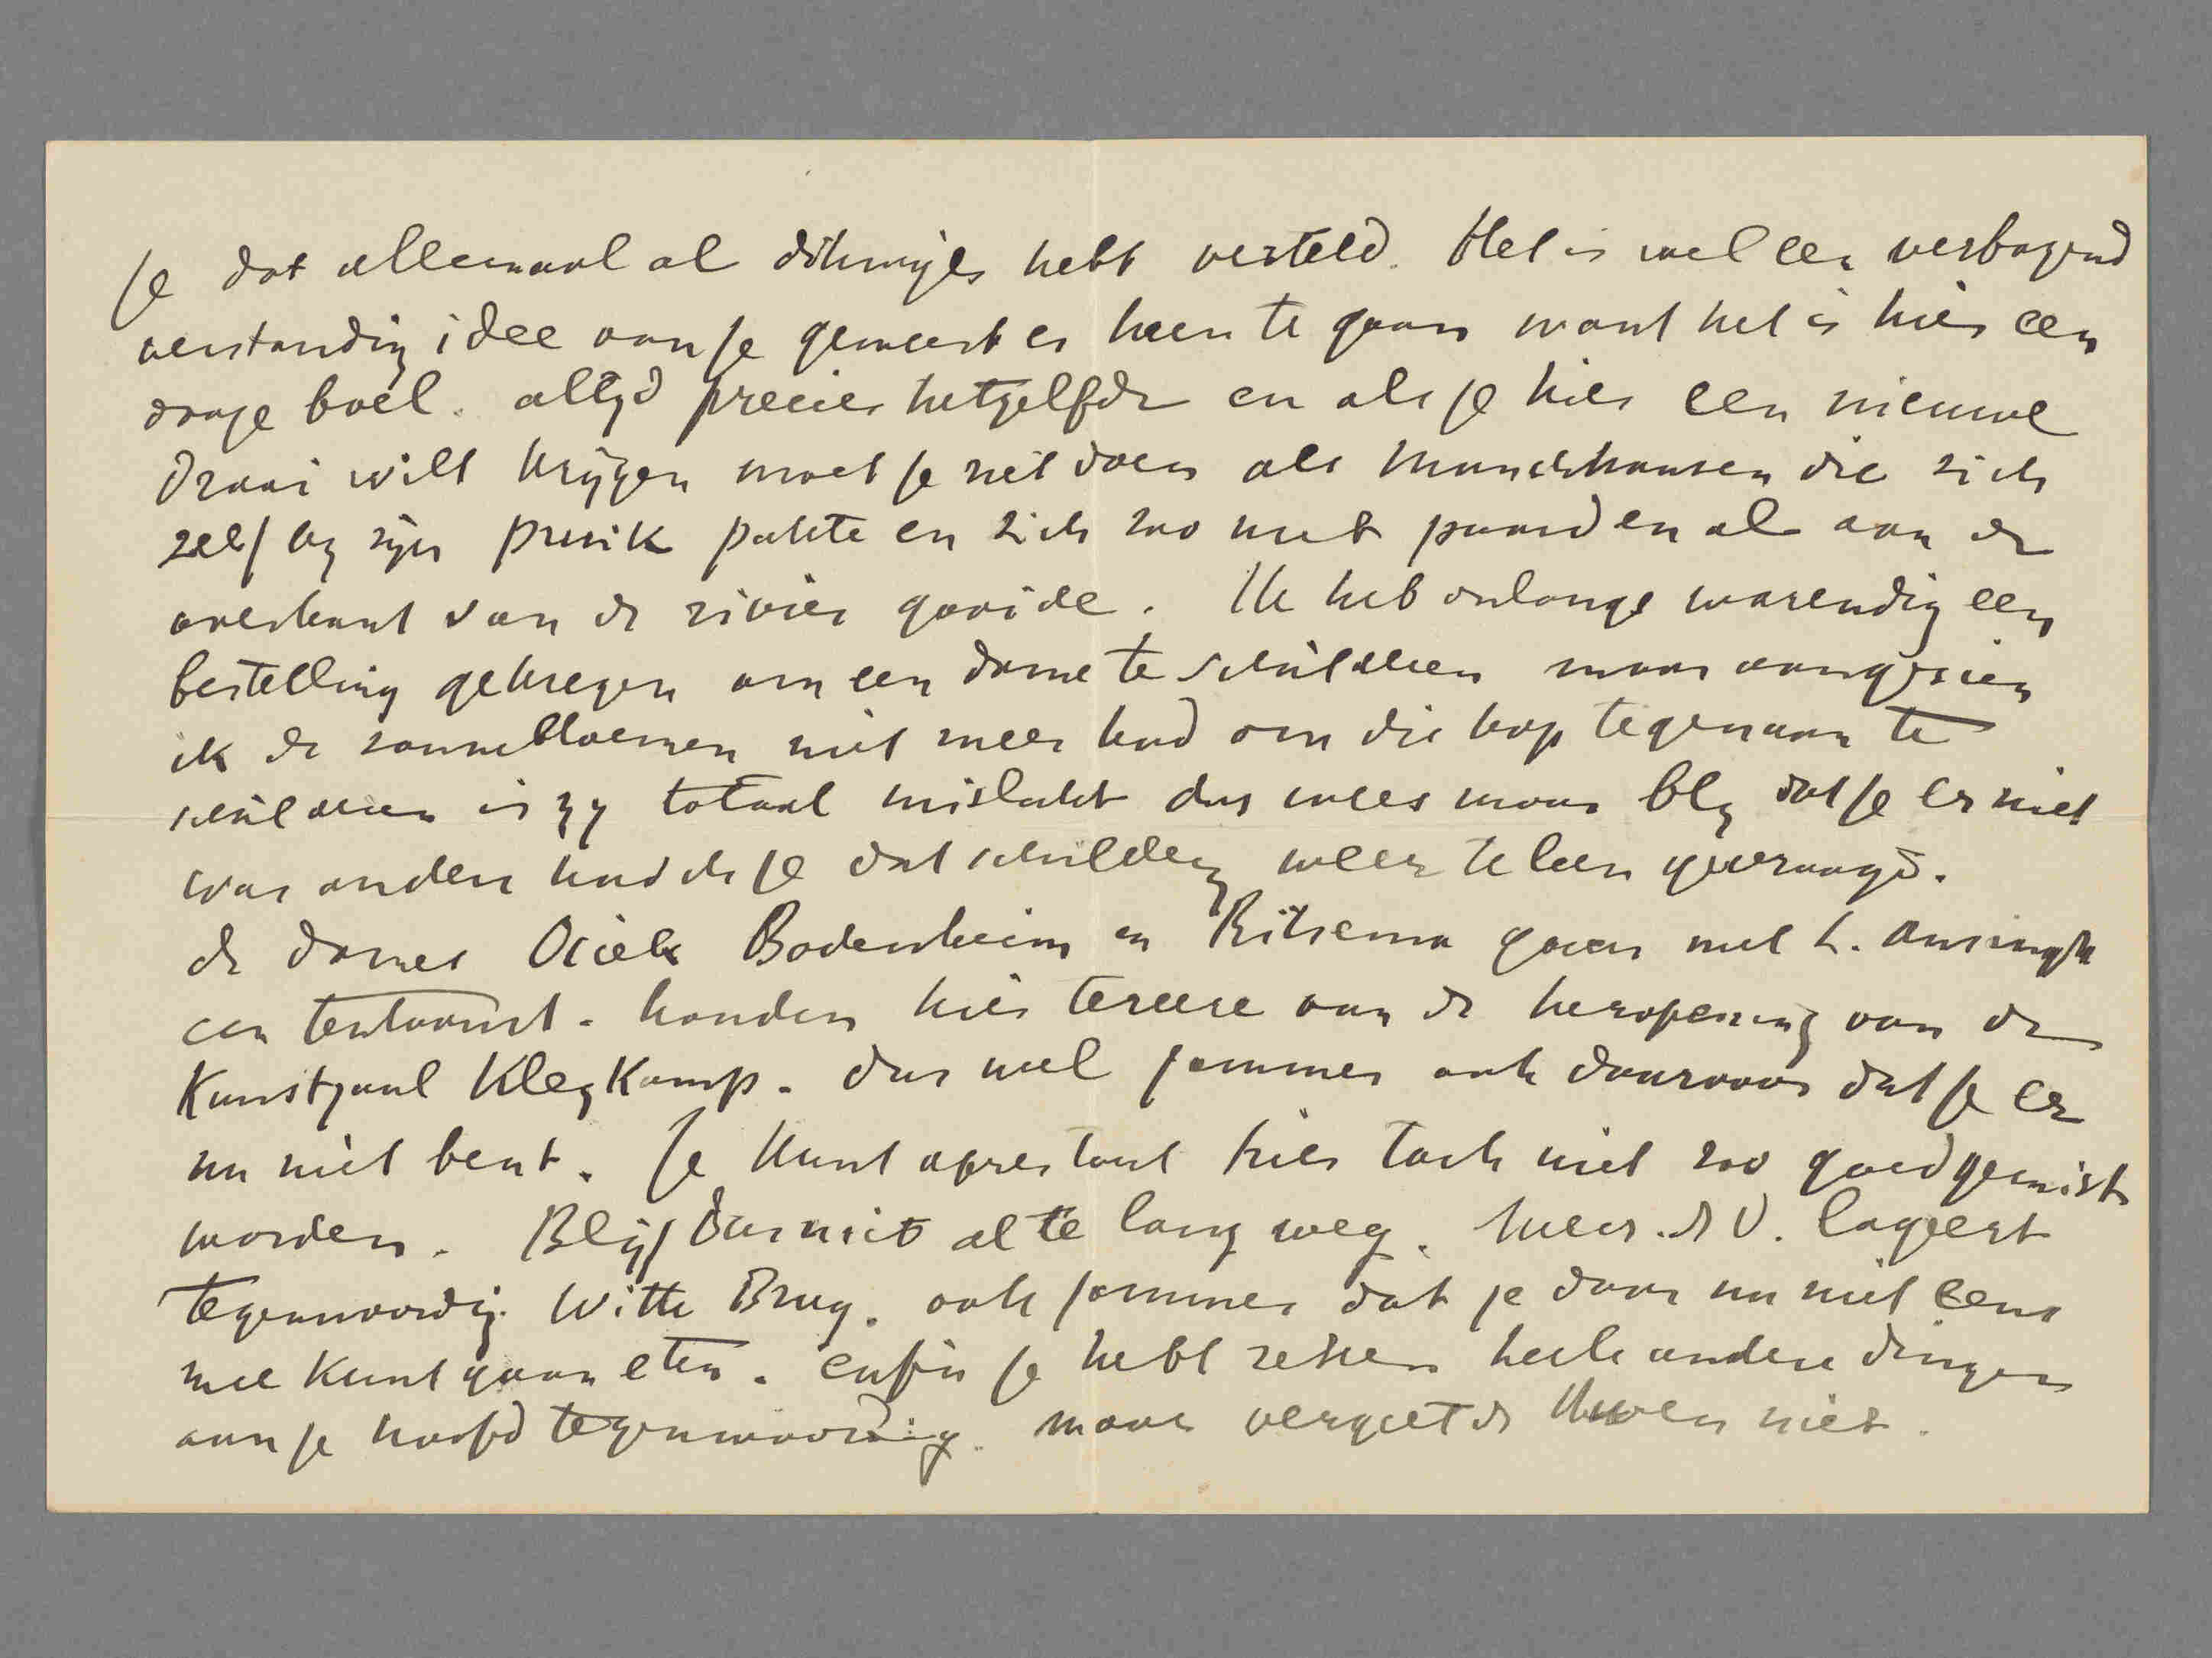 Je dat allemaal al dikwijls hebt verteld. Het is wel een verbazend
verstandig idee van je geweest er heen te gaan want het is hier een
droge boel. altyd precies hetzelfde en als je hier een nieuwe
draai wilt krijgen moet je net doen als Munchhausen die zich
zelf by zijn pruik pakte en zich zoo met paard en al aan de
overkant van de rivier gooide. Ik heb onlangs warendig een
bestelling gekregen om een dame te schilderen maar aangezien
ik de zonnebloemen niet meer had om die kop tegenaan te
schilderen is zy totaal mislukt dus wees maar bly dat je er niet
was anders had ik je dat schildery weer te leen gevraagd.
de dames Osieck Bodenheim en Ritsema gaan met L. Ansingh
een tentoonst. houden hier tereere van de heropening van de
Kunstzaal Kleykamp. dus wel jammer ook daarvoor dat je er
nu niet bent. Je kunt apres tout hier toch niet zoo goed gemist
worden. Blijf dus niet al te lang weg. Mevr. d V. logeert
tegenwoordig. Witte Brug. ook jammer dat je daar nu niet eens
mee kunt gaan eten. enfin je hebt zeker heele andere dingen
aan je hoofd tegenwoordig. maar vergeet de niet.